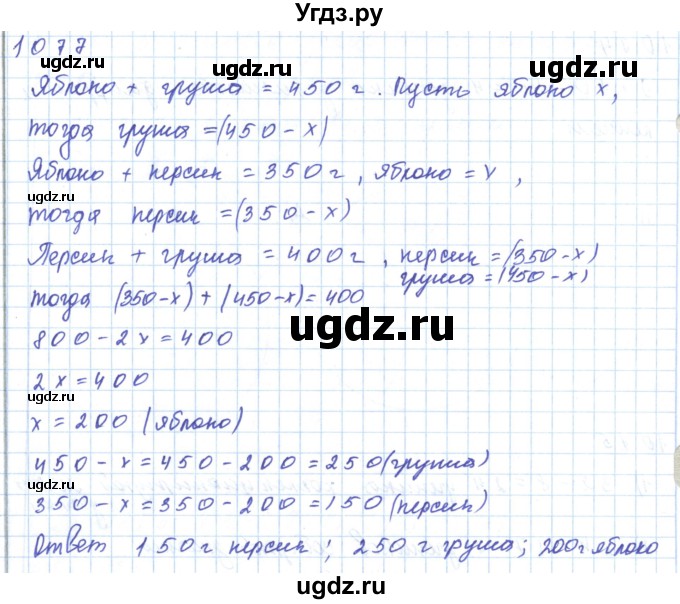 Угдз.ру
1077
Яблоко + груша = 450 г. Пусть яблоко x,
тогда груша = (450 - x)
Яблоко + персик = 350 г, яблоко = x,
тогда персик = (350 - x)
Персик + груша = 400 г, персик = (350 - x)
груша = (450 - x)
тогда (350 - x) + (450 - x) = 400
800 - 2x = 400
2x = 400
x = 200 (яблоко)
450 - x = 450 - 200 = 250 (груша)
350 - x = 350 - 200 = 150 (персик)
Ответ 150 г персик; 250 г груша; 200г яблоко
ugdz.ru
ugdz.ru
ugdz.ru
ugdz.ru
ugdz.ru
ugdz.ru
ugdz.ru
ugdz.ru
ugdz.ru